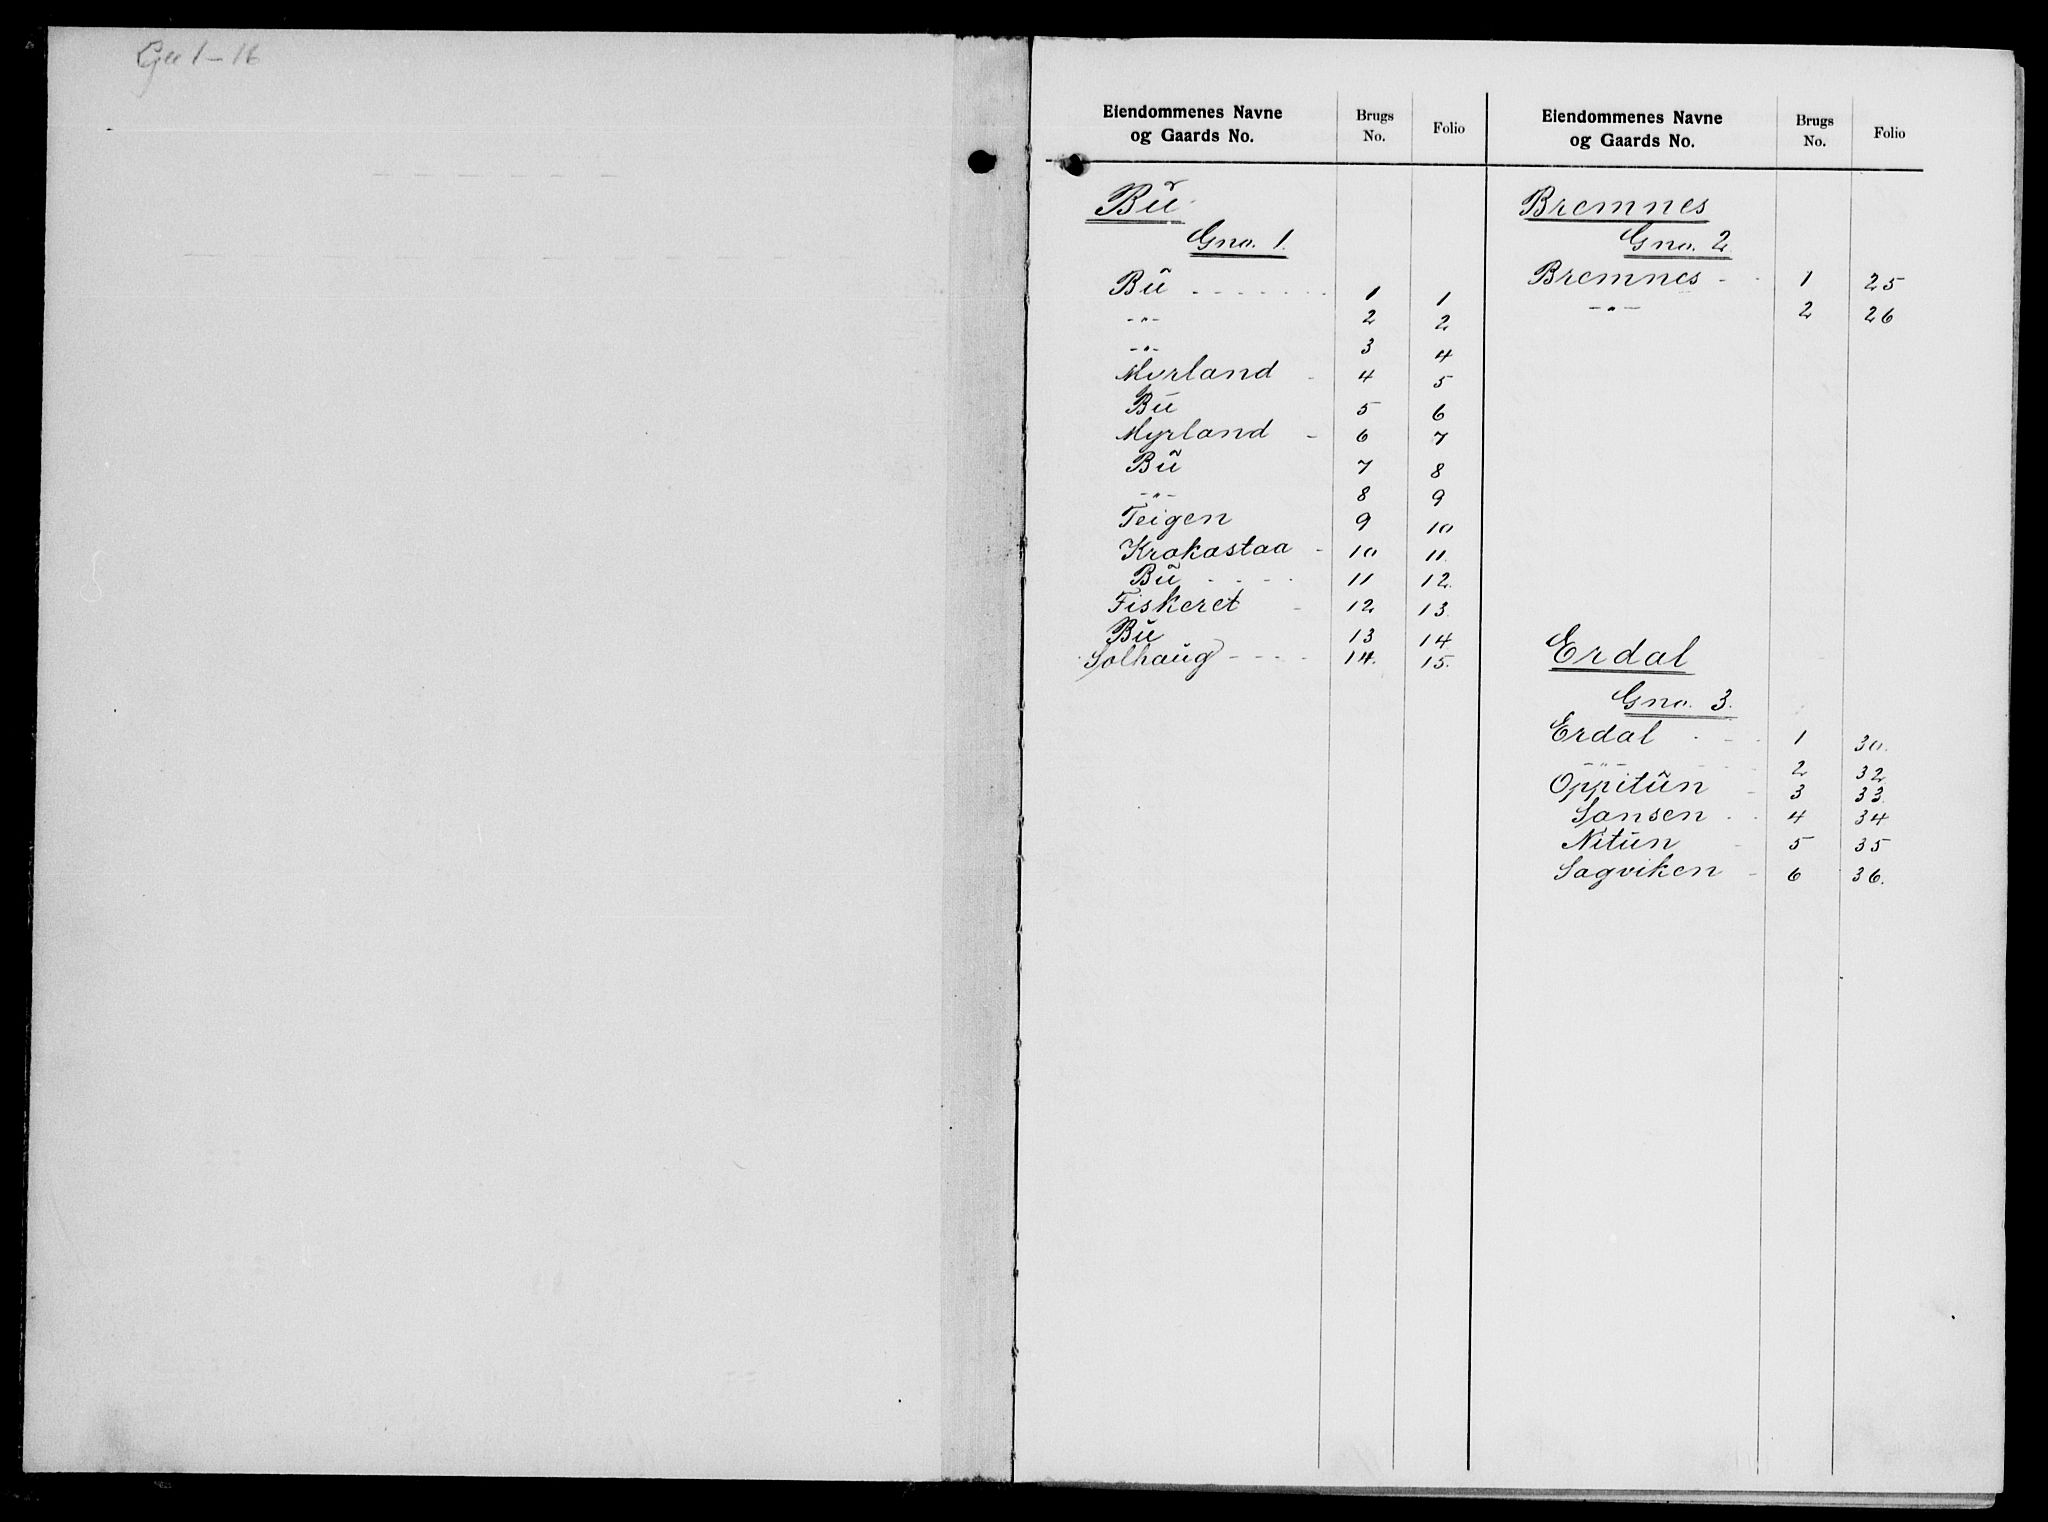 Gnr 1-16
Eiendommenes Navne og Gaards No. Brugs No. Folio
Bu
Gno. 1.
Bu 1 1
-"- 2 2
-"- 3 4
Myrland 4 5
Bu 5 6
Myrland 6 7
Bu 7 8
-"- 8 9
Teigen 9 10
Krakastaa 10 11.
Bu 11 12.
Fiskeret 12 13.
Bu 13 14
Solhaug 14. 15.
Eiendommenes Navne og Gaards No. Brugs No. Folio
Bremnes
Gno. 2.
Bremnes 1 25
-"- 2 26
Erdal
Gno. 3.
Erdal 1 30.
-"- 2 32
Oppitun 3 33.
Sansen 4 34
Nitun 5 35
Sagviken 6 36.